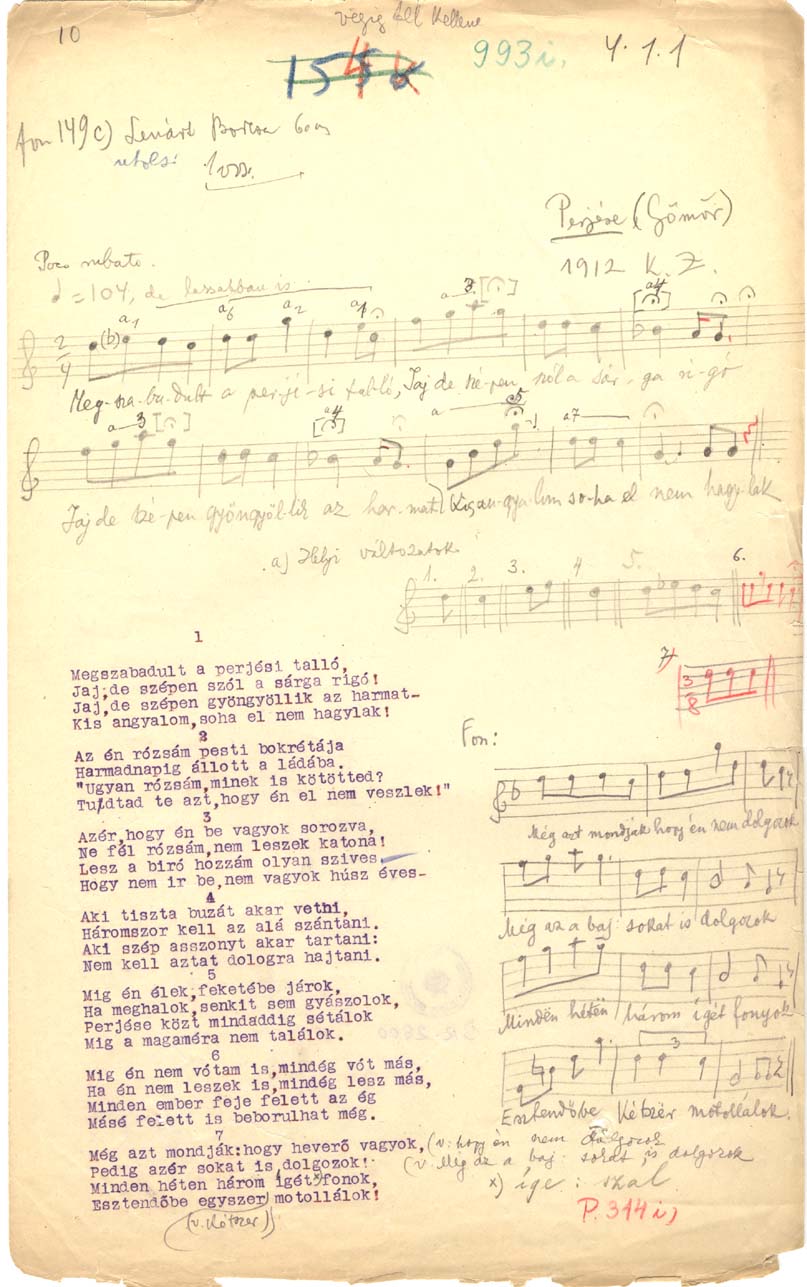 10 végig áll kellene
154 993i. 4.1.1
fon 149c) Lenárt Borcsa 60 os
utolsó 1 vsz.
Perjése (Gömör)
Poco rubato.
1912 K. Z.
♩=104, de lassabban is
Meg-sza-ba-dult a perjé-si talló, Jaj de szé-pen szól a sár-ga ri-gó
Jaj de szé-pen gyöngyöl-lik az har-mat Kis an-gya-lom so-ha el nem hagy-lak
a) Helyi változatok
1. 2. 3. 4 5. 6.
7
3/8
1
Megszabadult a perjési talló,
Jaj,de szépen szól a sárga rigó!
Jaj,de szépen gyöngyöllik az harmat-
Kis angyalom,soha el nem hagylak!
2
Az én rózsám pesti bokrétája
Harmadnapig állott a ládába.
"Ugyan rózsám,minek is kötötted?
Tudtad te azt,hogy én el nem veszlek!"
3
Azér,hogy én be vagyok sorozva,
Ne félj rózsám,nem leszek katona!
Lesz a biró hozzám olyan szives
Hogy nem ir be,nem vagyok húsz éves-
4
Aki tiszta buzát akar vethi,
Háromszor kell az alá szántani.
Aki szép asszonyt akar tartani:
Nem kell aztat dologra hajtani.
5
Mig én élek,feketébe járok,
Ha meghalok,senkit sem gyászolok,
Perjése közt mindaddig sétálok
Mig a magaméra nem találok.
6
Mig én nem vótam is,mindég vót más,
Ha én nem leszek is,mindég lesz más,
Minden ember feje felett az ég
Másé felett is beborulhat még.
7
Még azt mondják:hogy heverő vagyok, (v. hogy én nem dolgozok
Pedig azér sokat is dolgozok! (v. Még az a baj sokat is dolgozok
Minden héten három igét fonok, x) íge: szál
Esztendőbe egyszer motollálok!
(v. kétszer)
P. 314 i)
Fon:
Még azt mondják hogy én nem dolgozok
Még az a baj sokat is dolgozok
Mindën hétën három ígét fonyok
Esztendőbe kétszër motollálok.